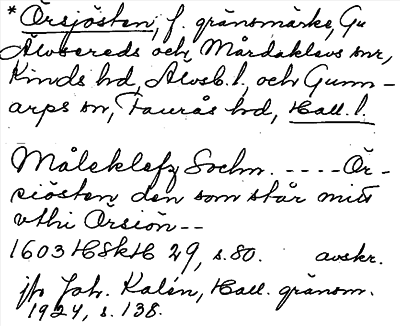 *Örsjösten, f. gränsmärke, Gu
Älvsereds och Mårdaklevs snr,
Kinds hd, Älvsb. l., och Gunn-
arps sn, Faurås hd, Hall. l.
Måleklefz Sochn. ---- Ör-
siösten den som står mitt
vthi Örsiön --
1603 HSkH 29, s. 80. avskr.
jfr Joh. Kalén, Hall. gränsm.
1924, s. 138.